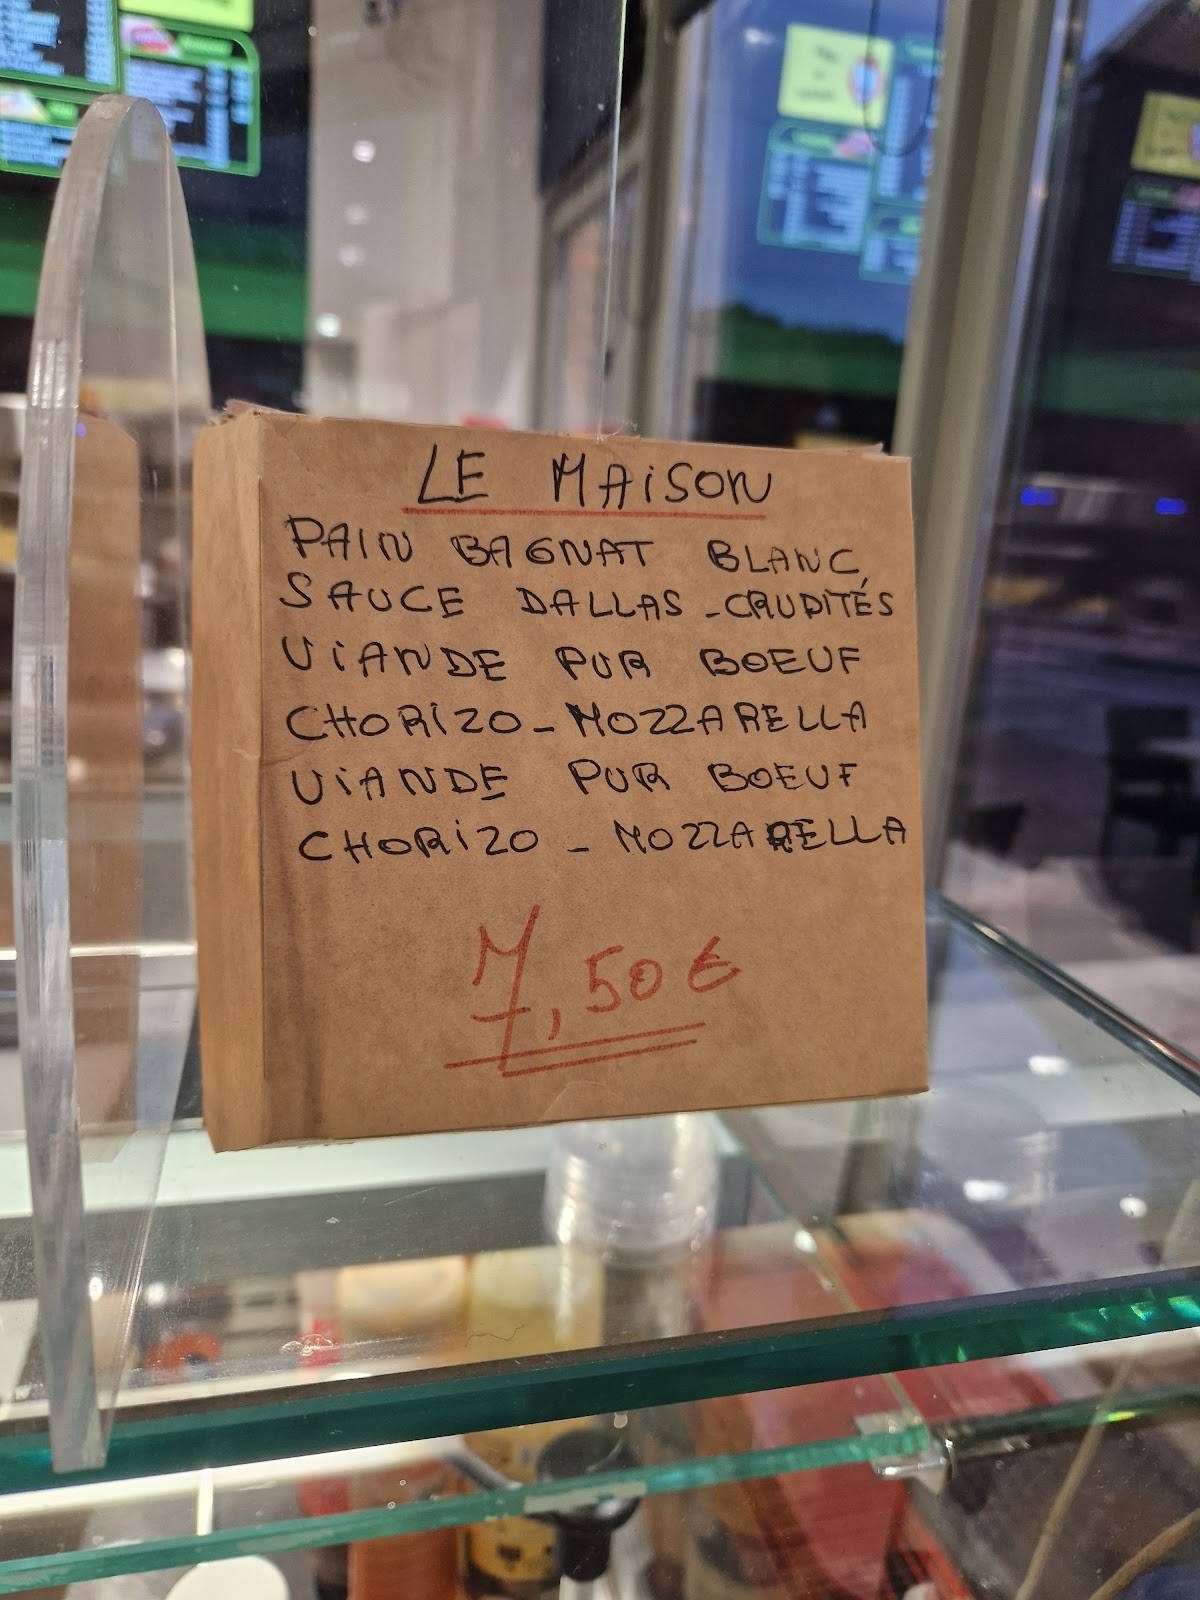 LE MAiSON
PAIN BAGNAT BLANC,
SAUCE DALLAS - CRUDITÉS
ViANDE PUR BOEUF
CHORiZO - MOZZARELLA
ViANDE PUR BOEUF
CHORiZO - MOZZARELLA
7,50€